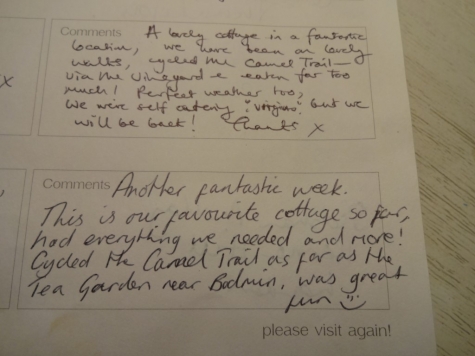 Comments A lovely cottage in a fantastic
location, we have been on lovely
walks, cycled the Camel Trail –
via the vineyard & eaten far too
much! Perfect weather too,
We were self catering "virgins" but we
will be back! Thanks x
x
Comments Another fantastic week.
This is our favourite cottage so far,
had everything we needed and more!
Cycled the Camel Trail as far as the
Tea Garden near Bodmin, was great
fun
please visit again!